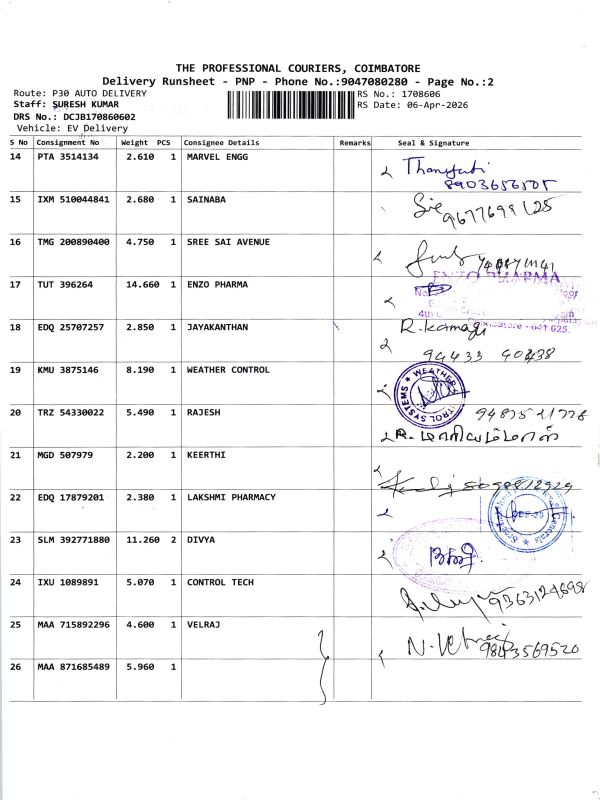 THE PROFESSIONAL COURIERS, COIMBATORE
Delivery Runsheet - PNP - Phone No.:9047080280 - Page No.:2
Route: P30 AUTO DELIVERY RS No.: 1708606
Staff: SURESH KUMAR RS Date: 06-Apr-2026
DRS No.: DCJB170860602
Vehicle: EV Delivery
S No Consignment No Weight PCS Consignee Details Remarks Seal & Signature
14 PTA 3514134 2.610 1 MARVEL ENGG
8903656505
15 IXM 510044841 2.680 1 SAINABA
9677699125
16 TMG 200890400 4.750 1 SREE SAI AVENUE
17 TUT 396264 14.660 1 ENZO PHARMA ENZO PHARMA
18 EDQ 25707257 2.850 1 JAYAKANTHAN R.
94433 90838
19 KMU 3875146 8.190 1 WEATHER CONTROL WEATHER CONTROL SYSTEMS
20 TRZ 54330022 5.490 1 RAJESH
R.
21 MGD 507979 2.200 1 KEERTHI
22 EDQ 17879201 2.380 1 LAKSHMI PHARMACY
23 SLM 392771880 11.260 2 DIVYA
24 IXU 1089891 5.070 1 CONTROL TECH
9363124698
25 MAA 715892296 4.600 1 VELRAJ N. Velraj
9843569520
26 MAA 871685489 5.960 1